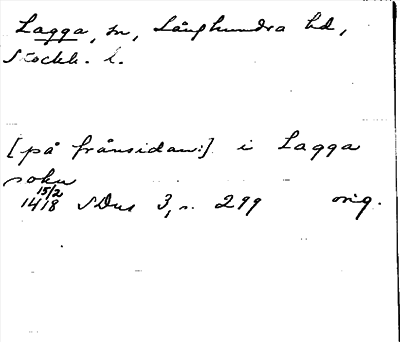 Lagga, sn, Långhundra hd,
Stockh. l.
[på frånsidan:] i Lagga
sokn
15/2
1418 SDns 3, s. 299 orig.